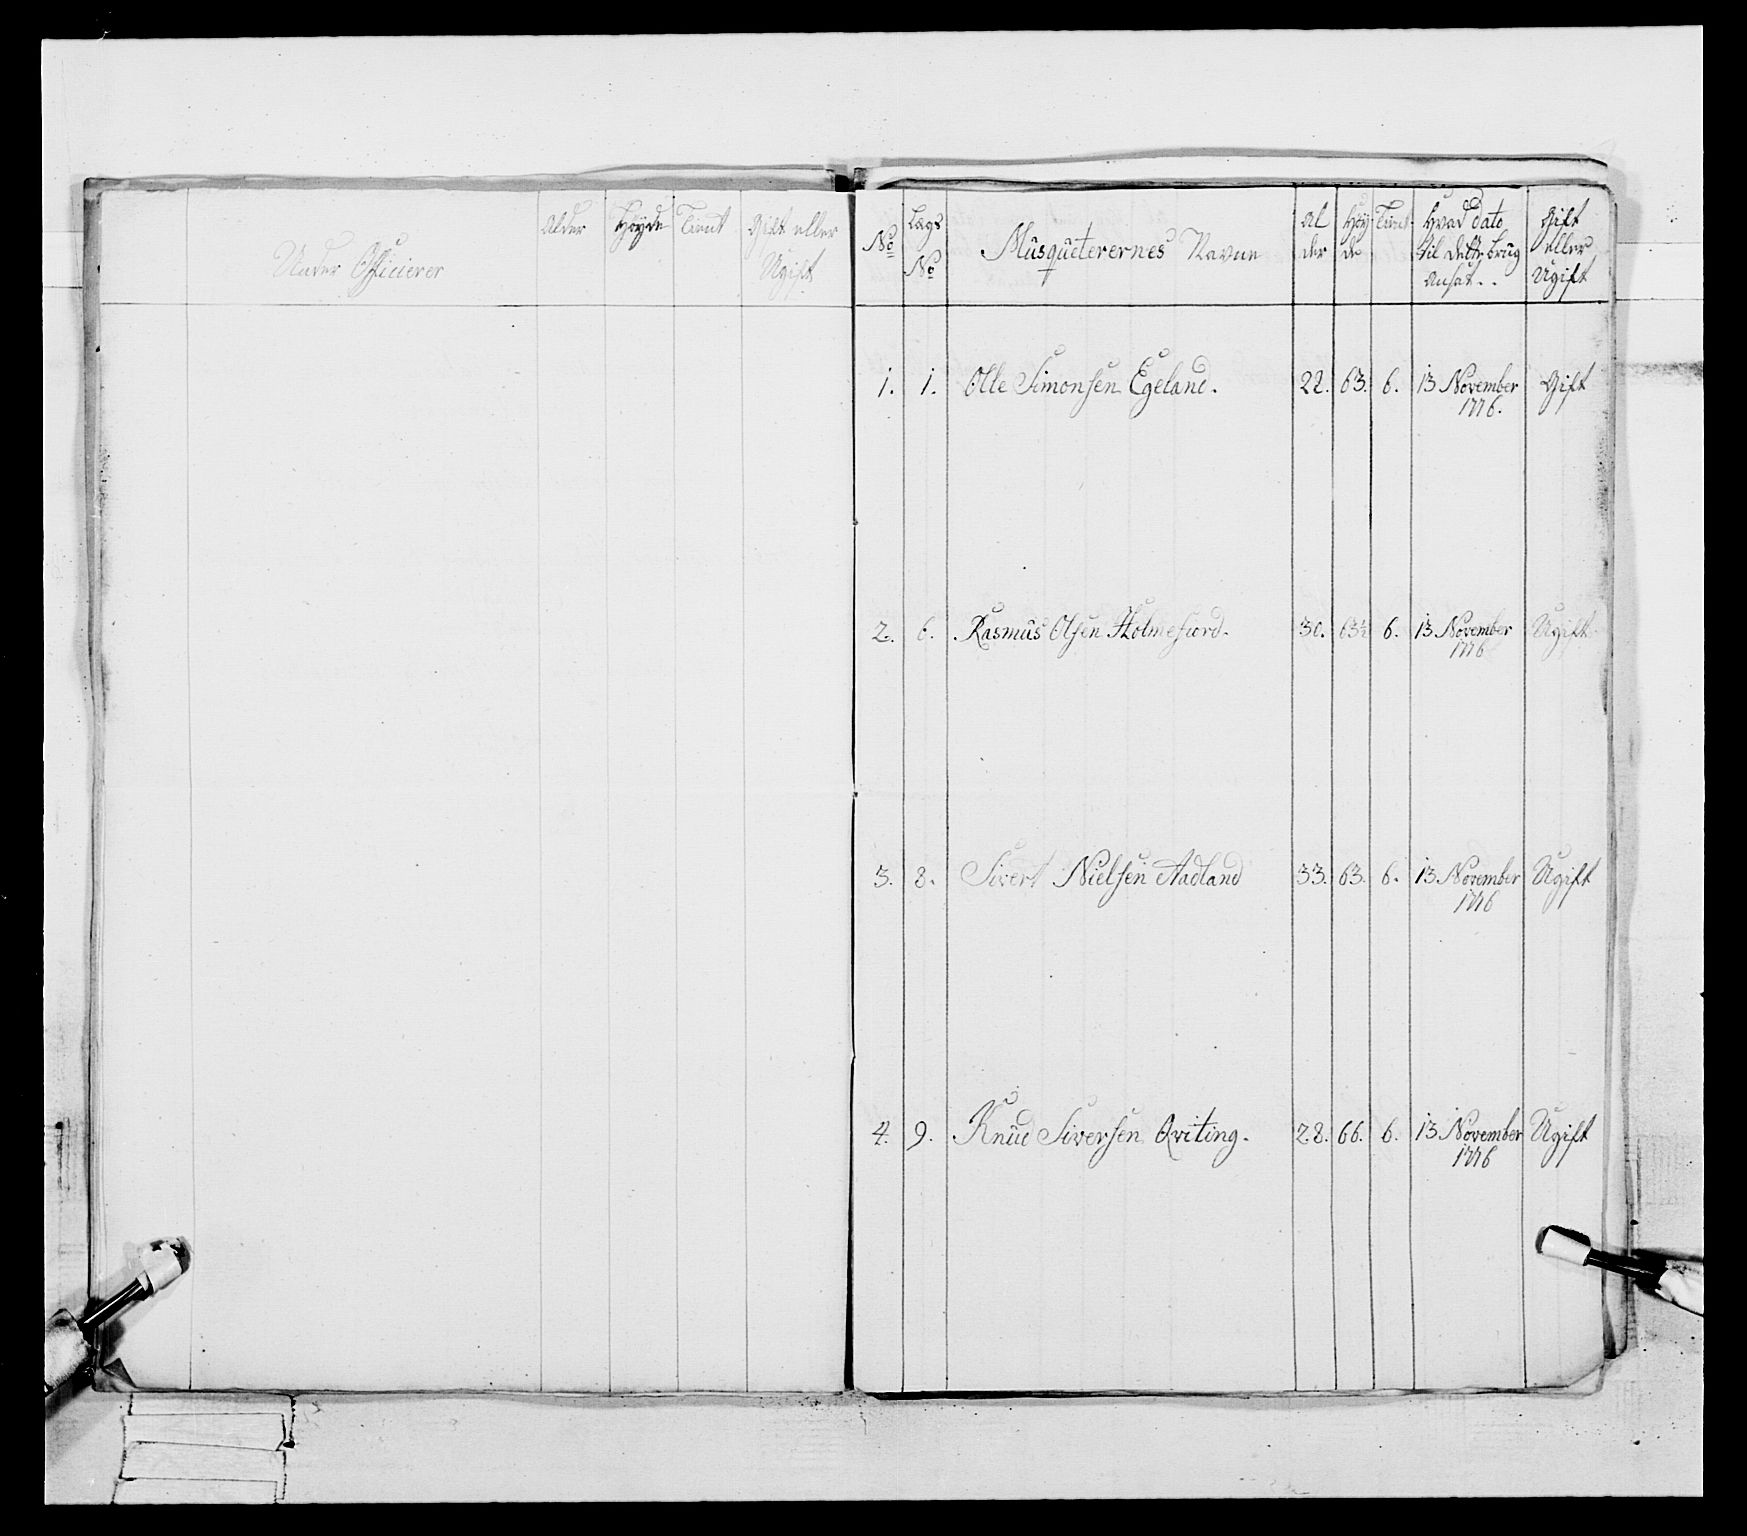 Under Officierer
Alder
Høyde
Tient
Gift eller
Ugift
No
Lægs
No
Musqueterernes Navne
Al
der
Høy
de
Tient
Hvad dato
til dette brug
ansat..
Gift
eller
Ugift
1. 1. Olle Simonsen Egeland. 22. 63. 6. 13 November Gift
1776.
2. 6. Rasmus Olsen Holmefiord. 30. 63½ 6. 13 November Ugift.
1776
3. 8. Sivert Nielsen Aadland 33. 63. 6. 13 November Ugift
1776
4. 9. Knud Siversen Qviting. 28. 66. 6. 13 November Ugift
1776